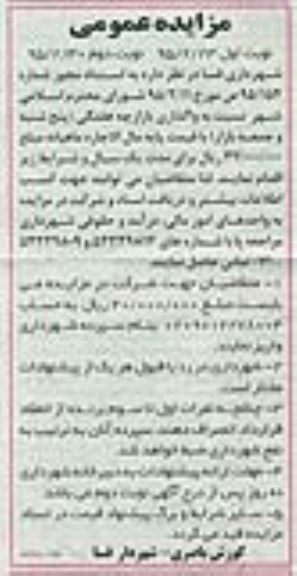 مزایده عمومی
نوبت اول: ۹۵/۲/۲۳ نوبت دوم: ۹۵/۲/۳۰
شهرداری فسا در نظر دارد به استناد مجوز شماره
شورای محترم اسلامی
شهر نسبت به واگذاری بازارچه هفتگی (پنج شنبه
و جمعه بازار) با قیمت پایه سال اول اجاره ماهیانه مبلغ
ریال برای مدت یک سال و شرایط زیر
اقدام نمایند. لذا متقاضیان می توانند جهت کسب
اطلاعات بیشتر و دریافت اسناد و شرکت در مزایده
به واحدهای امور مالی، درآمد و حقوقی شهرداری
مراجعه یا با شماره های
تماس حاصل نمایند.
۱- متقاضیان جهت شرکت در مزایده می
بایست مبلغ ۳۰/۰۰۰/۰۰۰ ریال به حساب
بنام سپرده شهرداری
واریز نمایند.
۲- شهرداری در رد یا قبول هر یک از پیشنهادات
مختار است.
۳- چنانچه نفرات اول تا سوم برنده از انعقاد
قرارداد انصراف دهند، سپرده آنان به ترتیب به
نفع شهرداری ضبط خواهد شد.
۴- مهلت ارائه پیشنهادات به دبیرخانه شهرداری
۱۰ روز پس از درج آگهی نوبت دوم می باشد.
۵- سایر شرایط و برگ پیشنهاد قیمت در اسناد
مزایده قید می گردد.
کورش ناصری - شهردار فسا